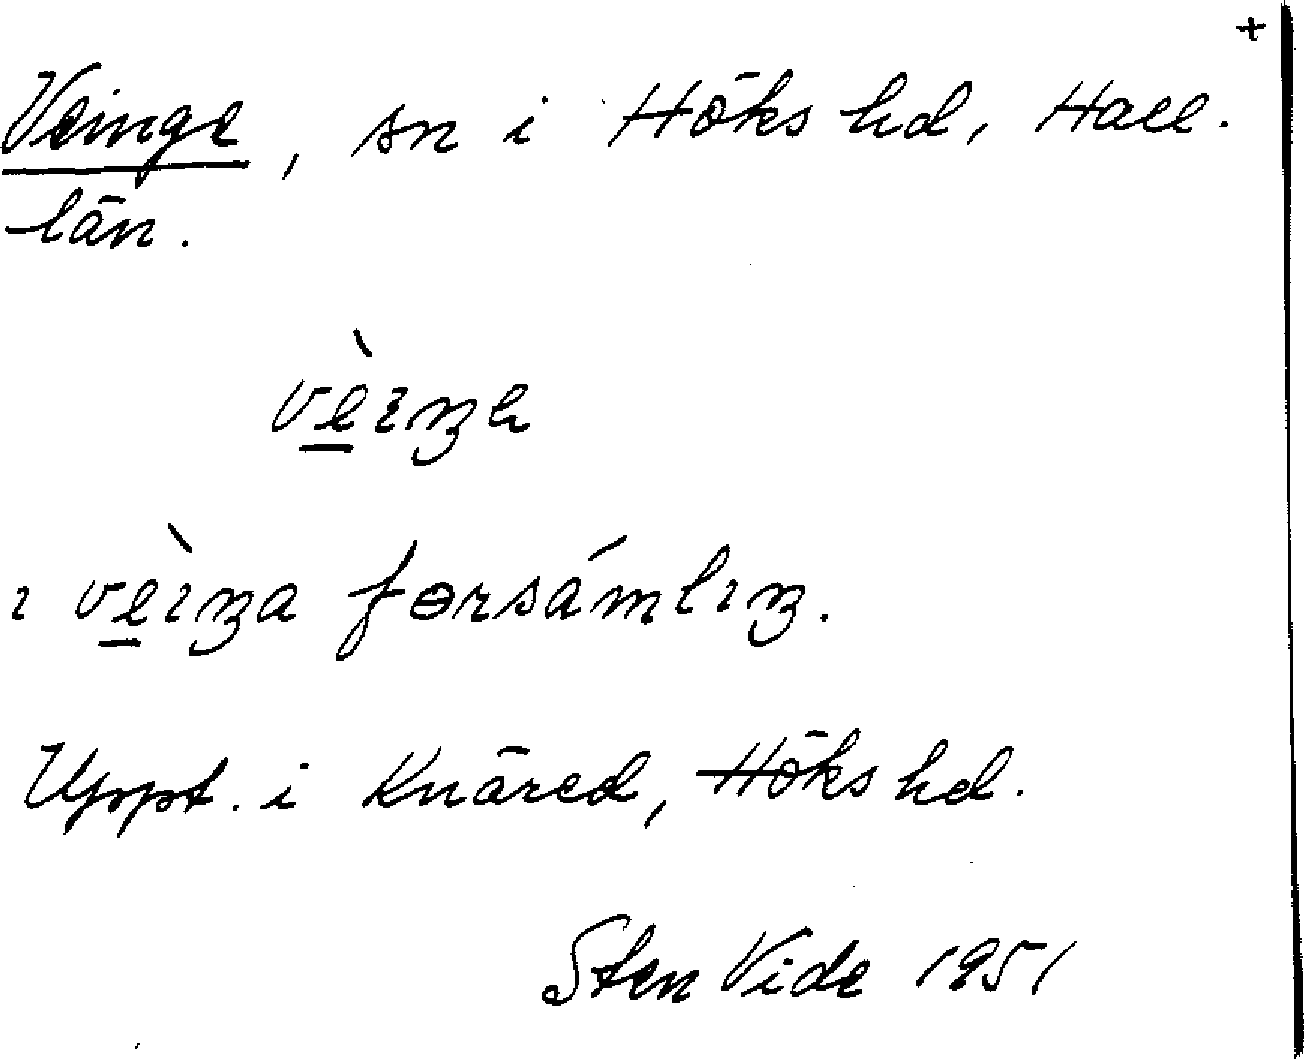 +
Veinge, sn i Höks hd, Hall.
län.
vè̱ıŋa
ı vè̱ıŋa fɵrsámlıŋ.
Uppt. i Knäred, Höks hd.
Sten Vide 1951